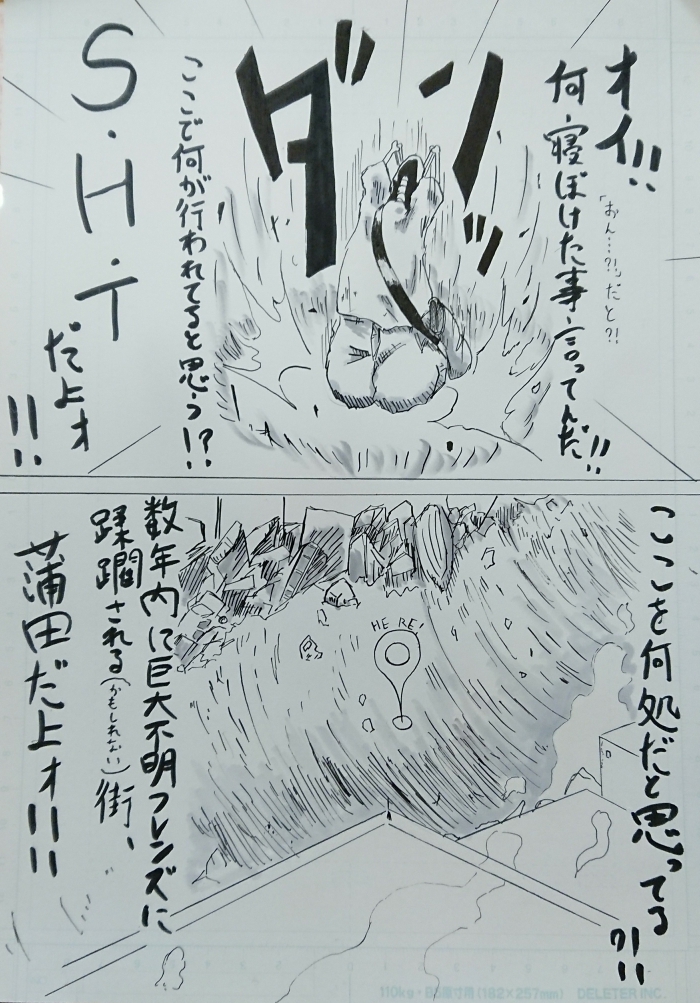 オイ!!
「おん…?!」だと?!
何寝ぼけた事言ってんだ!!
ダンッ
ここで何が行われてると思う!?
S・H・T
だよォ!!
ここを何処だと思ってる?!!
HERE!
数年内に巨大不明フレンズに
蹂躙される(かもしれない)街、
蒲田だよォ!!!
110kg・B5原寸用(182×257mm) DELETER INC.